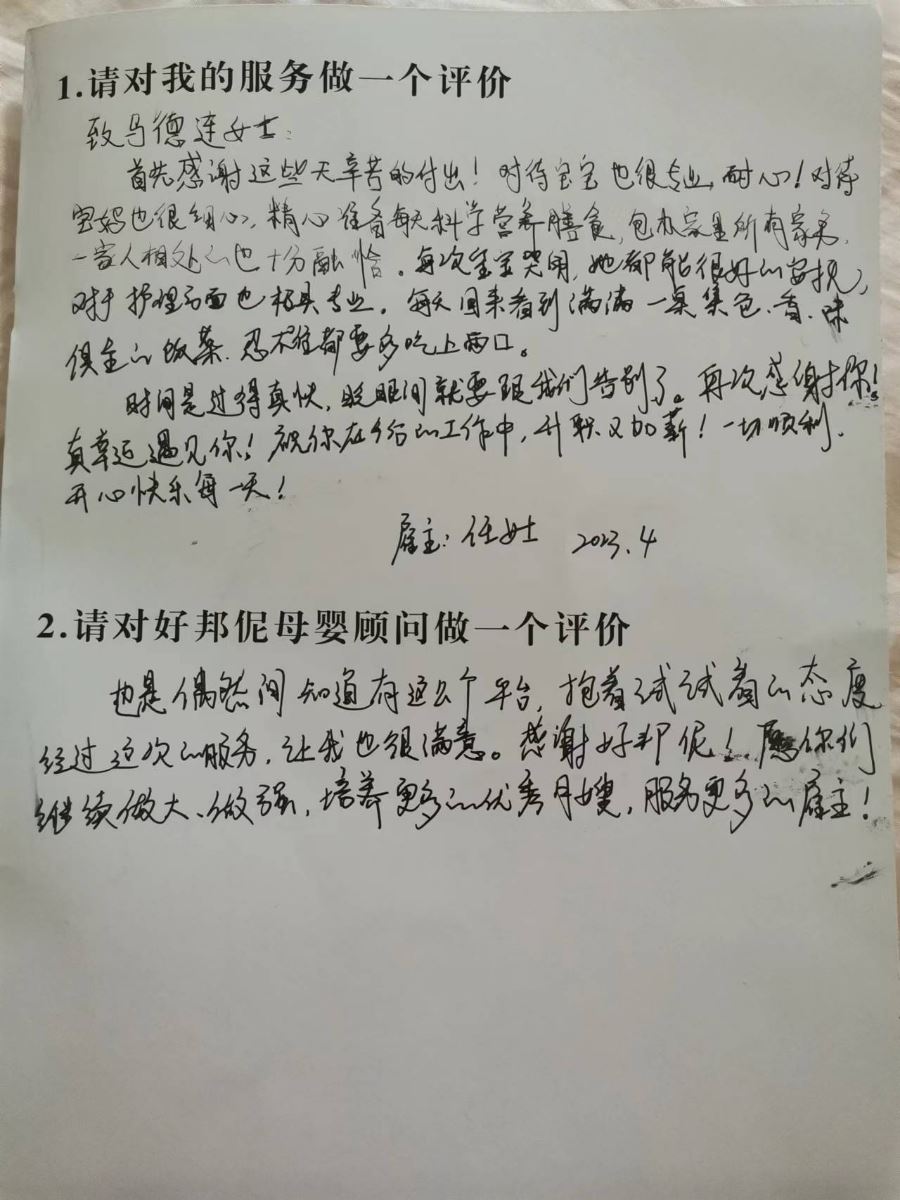 1.请对我的服务做一个评价
致马德连女士:
首先感谢这些天辛苦的付出!对待宝宝也很专业,耐心!对待
宝妈也很细心,精心准备每天科学营养膳食,包办家里所有家务,
一家人相处的也十分融恰。每次宝宝哭闹,她都能很好的安抚,
对于护理方面也极具专业。每天回来看到满满一桌集色、香、味
俱全的饭菜,忍不住都要多吃上两口。
时间是过得真快,眨眼间就要跟我们告别了。再次感谢你!
真幸运遇见你!祝你在今后的工作中,升职又加薪!一切顺利,
开心快乐每一天!
雇主:任女士 2023.4
2.请对好邦伲母婴顾问做一个评价
也是偶然间知道有这么个平台,抱着试试着的态度
经过这次的服务,让我也很满意。感谢好邦伲!愿你们
继续做大、做强,培养更多的优秀月嫂,服务更多的雇主!